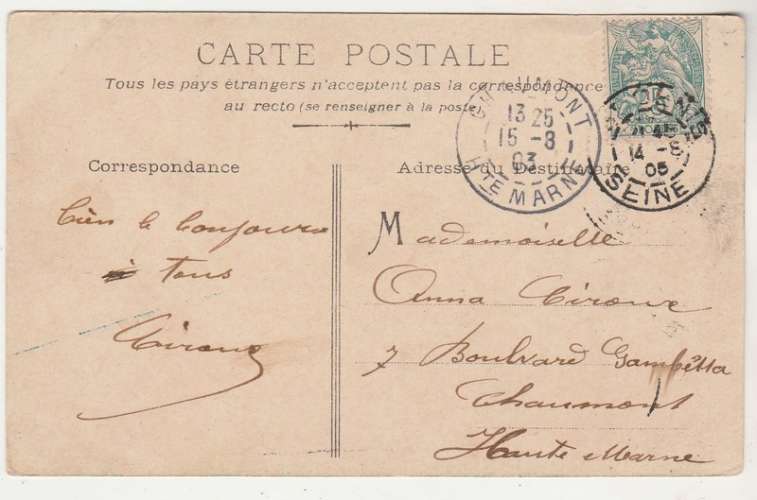 CARTE POSTALE
Tous les pays étrangers n'acceptent pas la correspondance
au recto (se renseigner à la poste)
CHAUMONT
13 25
15 -8
03
HTE MARNE
14 -8
05
SEINE
Correspondance
Adresse du Destinataire
bien le bonjour
à tous
Mademoiselle
Anna
7 Boulvard Gambetta
Chaumont
Haute Marne